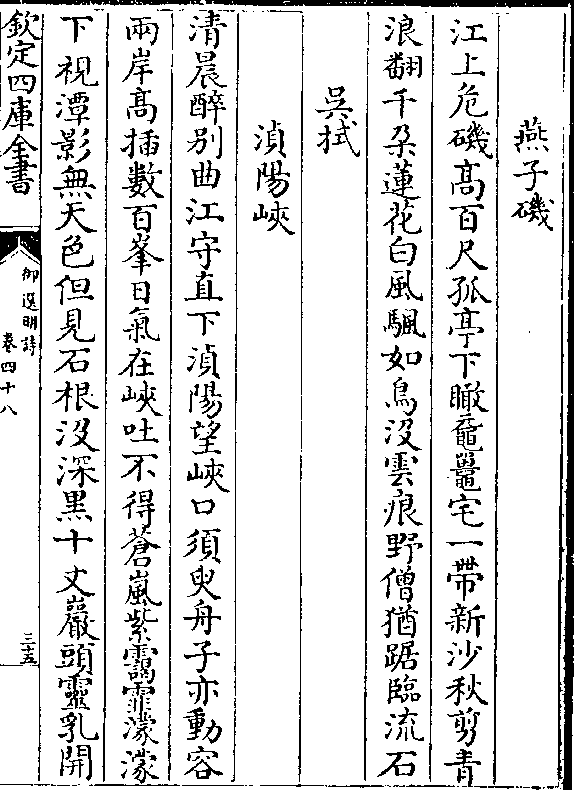 燕子磯
江上危磯高百尺孤亭下瞰黿鼉宅一帶新沙秋剪青
浪翻千朶蓮花白風颿如鳥没雲痕野僧猶踞臨流石
吳拭
湞陽峽
清晨醉别曲江守直下湞陽望峽口須臾舟子亦動容
兩岸髙插數百峯日氣在峽吐不得蒼嵐紫靄霏濛濛
下視潭影無天色但見石根没深黒十丈巖頭靈乳開
欽定四庫全書
御選明詩
卷四十八
三五